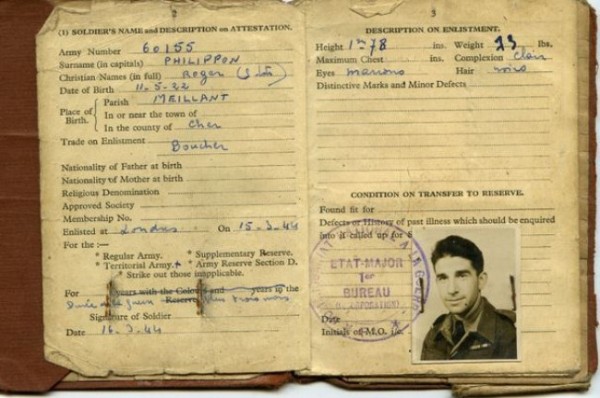 2
(1) SOLDIER'S NAME and DESCRIPTION on ATTESTATION.
Army Number 60155
Surname (in capitals) PHILIPPON
Christian Names (in full) Roger
Date of Birth 11.5.22
Place of Birth.
Parish MEILLANT
In or near the town of
In the county of Cher
Trade on Enlistment
Boucher
Nationality of Father at birth
Nationality of Mother at birth
Religious Denomination
Approved Society
Membership No.
Enlisted at Londres On 15-3-44
For the :—
* Regular Army. * Supplementary Reserve.
* Territorial Army. * Army Reserve Section D.
* Strike out those inapplicable.
For years with the Colours and years in the
Reserve plus trois mois
Signature of Soldier
Date 16-3-44
3
DESCRIPTION ON ENLISTMENT.
Height 1m78 ins. Weight lbs.
Maximum Chest ins. Complexion Clair
Eyes marrons Hair
Distinctive Marks and Minor Defects
CONDITION ON TRANSFER TO RESERVE.
Found fit for
Defects or History of past illness which should be enquired
into if called up for
ETAT-MAJOR
1er
BUREAU
Date
Initials of M.O. i/c.